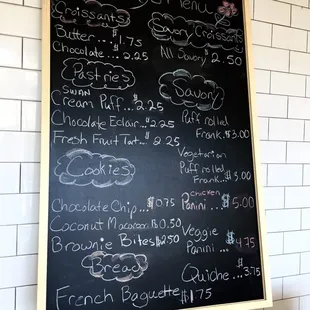 Menu
Croissants
Butter ... $1.75
Chocolate ... 2.25
Pastries
SWAN
Cream Puff ... $2.25
Chocolate Eclair ... $2.25
Fresh Fruit Tat ... $2.25
Cookies
Chocolate Chip ... $0.75
Coconut Macaroon $0.50
Brownie Bites $2.50
Bread
French Baguette $1.75
Savory Croissants
All Savory ... $2.50
Savory
Puff rolled
Frank ... $3.00
Vegetarian
Puff rolled
Frank ... $5.00
Chicken
Panini ... $5.00
Veggie
Panini ... $4.75
Quiche ... $3.75